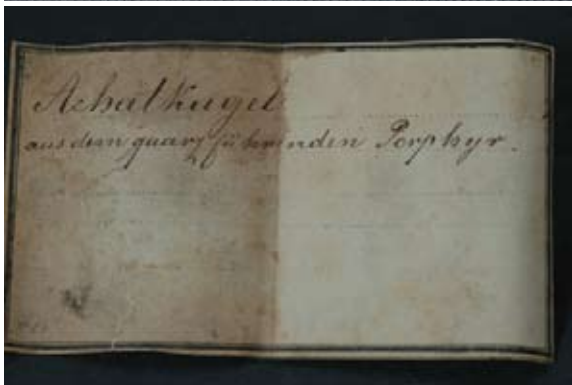 Achatkugel
aus dem quarzführenden Porphyr.